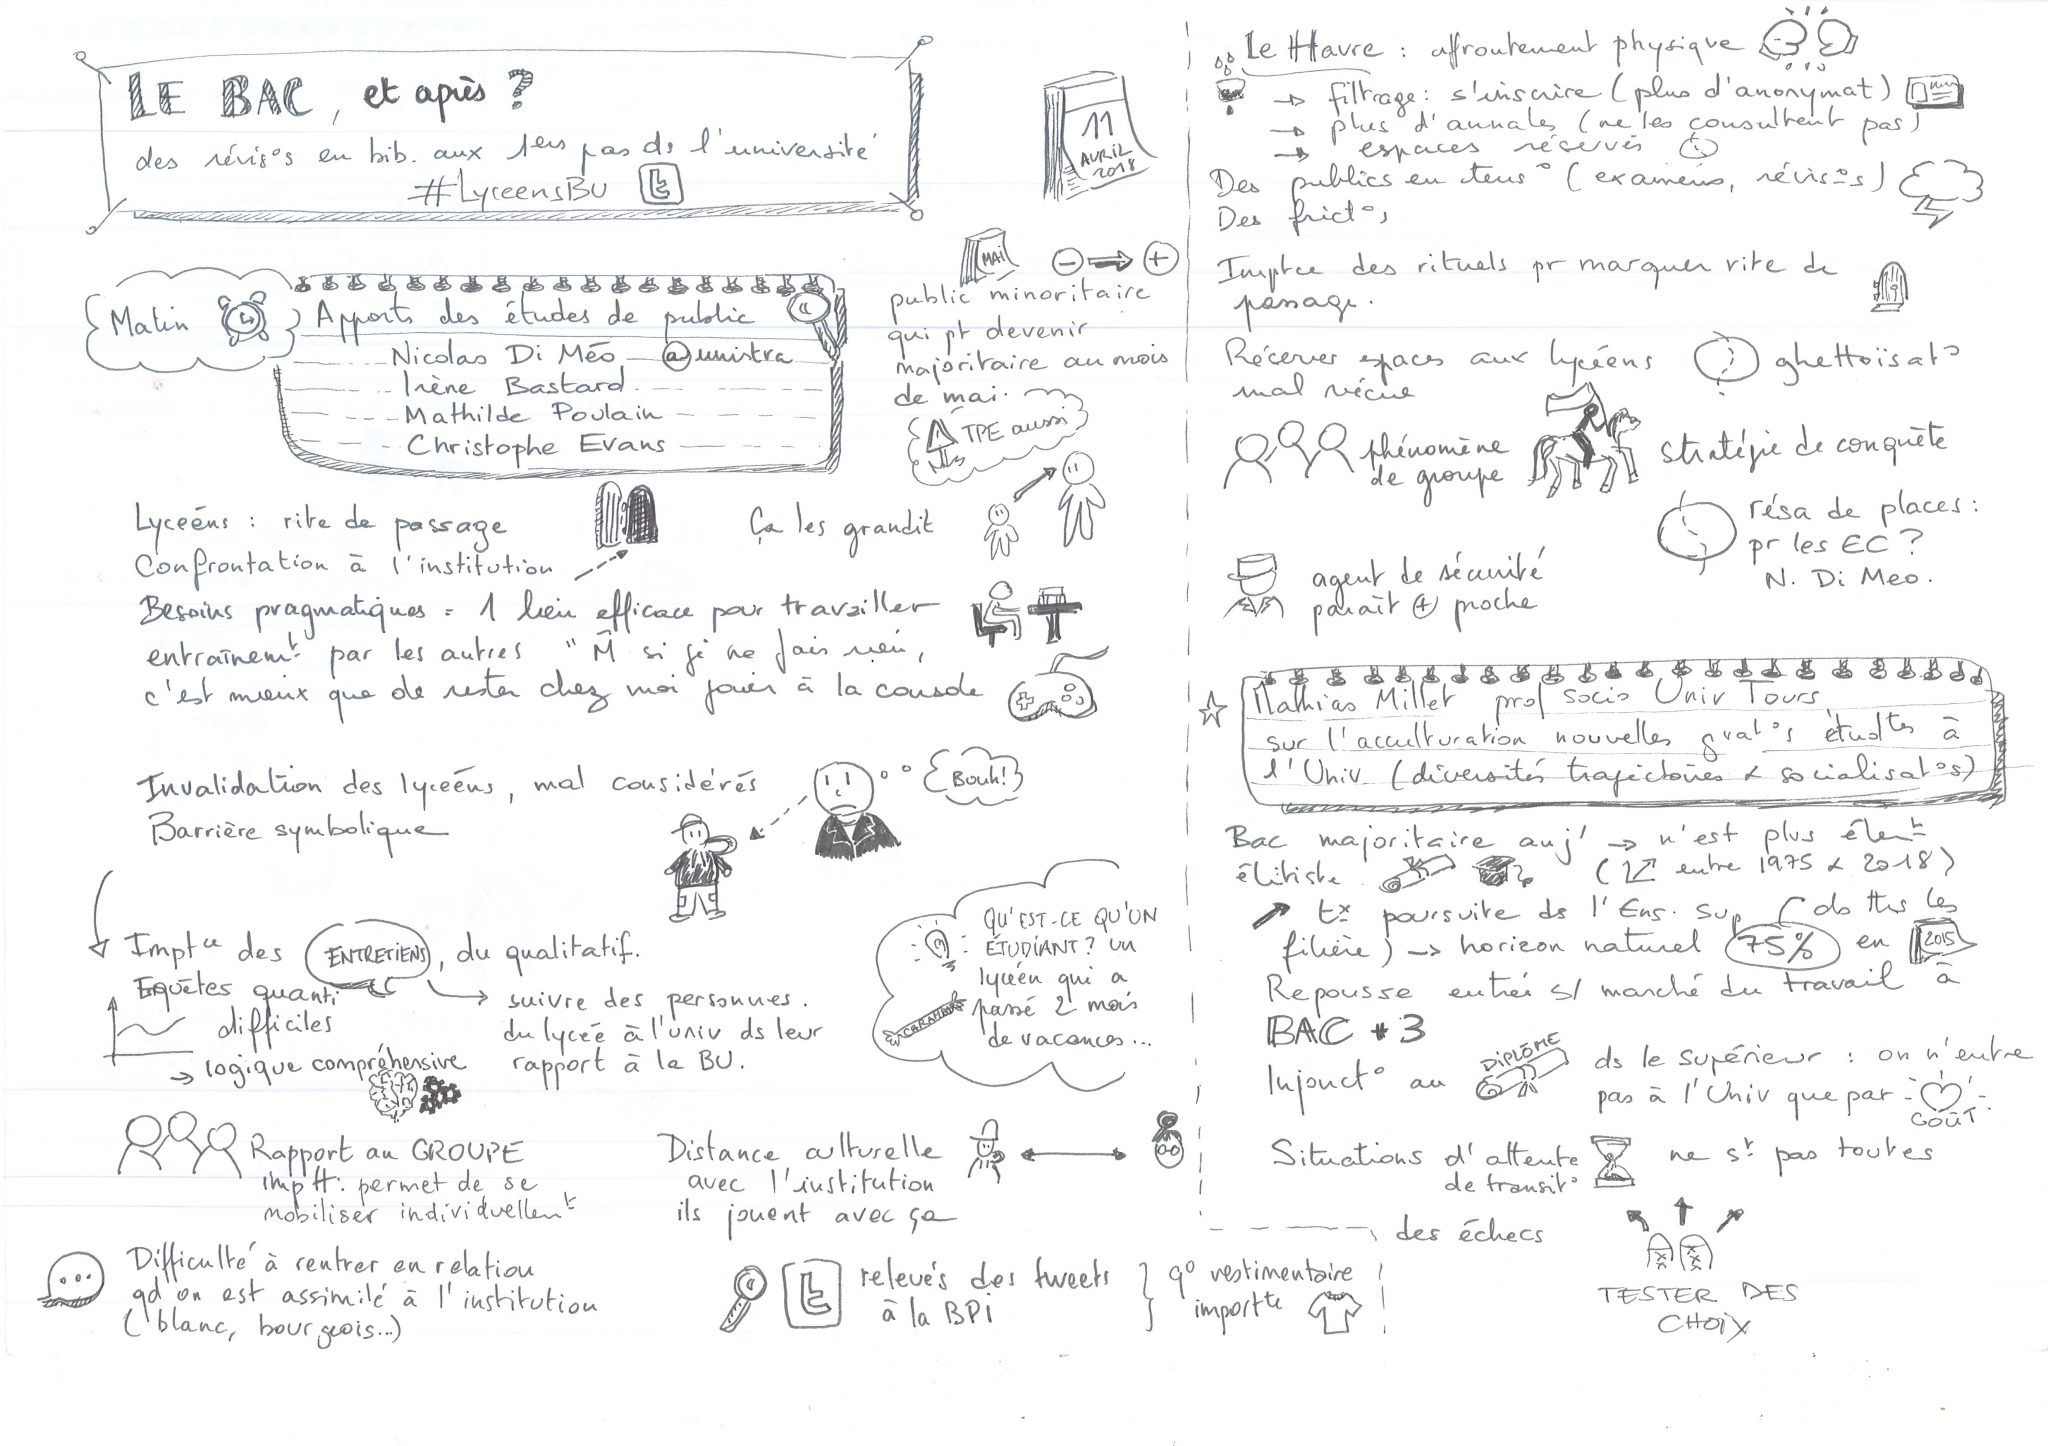 LE BAC, et après ?
des révis°s en bib. aux 1ers pas de l'université
#LyceensBU
11
AVRIL
2018
Matin
Apports des études de public
Nicolas Di Méo @unistra
Irène Bastard
Mathilde Poulain
Christophe Evans
MAI
- → +
public minoritaire
qui pt devenir
majoritaire au mois
de mai.
TPE aussi
Lycéens : rite de passage
Confrontation à l'institution
Ça les grandit
Besoins pragmatiques = 1 lieu efficace pour travailler
entraînemt par les autres "M̂ si je ne fais rien,
c'est mieux que de rester chez moi jouer à la console
Invalidation des lycéens, mal considérés
Barrière symbolique
Bouh!
Imptce des ENTRETIENS, du qualitatif.
Enquêtes quanti
difficiles
→ logique compréhensive
suivre des personnes.
du lycée à l'univ ds leur
rapport à la BU.
QU'EST-CE QU'UN
ÉTUDIANT? un
lycéen qui a
passé 2 mois
de vacances...
CARAMBAR
Rapport au GROUPE
imptt : permet de se
mobiliser individuellemt
Distance culturelle
avec l'institution
ils jouent avec ça
Difficulté à rentrer en relation
qd on est assimilé à l'institution
(blanc, bourgeois...)
relevés des tweets
à la BPi
q° vestimentaire
importte
Le Havre : affrontement physique
→ filtrage : s'inscrire (plus d'anonymat)
→ plus d'annales (ne les consultent pas)
→ espaces réservés
Des publics en tens° (examens, révis°s)
Des frict°s
Imptce des rituels pr marquer rite de
passage.
Réserver espaces aux lycéens
mal vécue
ghettoïsat°
phénomène
de groupe
stratégie de conquête
résa de places :
pr les EC ?
N. Di Meo.
agent de sécurité
paraît + proche
Mathias Millet prof socio Univ Tours
sur l'acculturation nouvelles gérat°s étudtes à
l'Univ (diversités trajectoires & socialisat°s)
Bac majoritaire auj' → n'est plus élemt
élitiste (entre 1975 & 2018)
↗ tx poursuite ds l'Ens. Sup (ds ttes les
filière) → horizon naturel 75% en 2015
Repousse entrée s/ marché du travail à
BAC + 3
Injonct° au DIPLÔME ds le supérieur : on n'entre
pas à l'Univ que par GOÛT
Situations d'attente
de transit°
ne st pas toutes
des échecs
TESTER DES
CHOIX